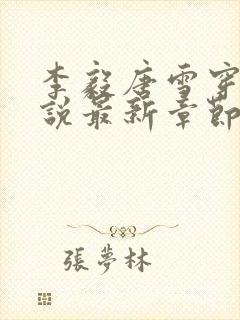 李毅唐雪穿
說最新章節
張夢林